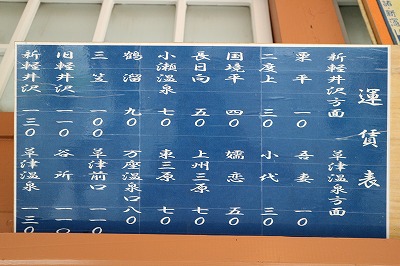 運賃表
新軽井沢方面
栗平 一〇
二度上 三〇
国境平 四〇
長日向 五〇
小瀬温泉 七〇
鶴溜 九〇
三笠 一〇〇
旧軽井沢 一一〇
新軽井沢 一三〇
草津温泉方面
吾妻 一〇
小代 三〇
嬬恋 五〇
上州三原 七〇
東三原 七〇
万座温泉口 八〇
草津前口 一〇〇
谷所 一一〇
草津温泉 一三〇